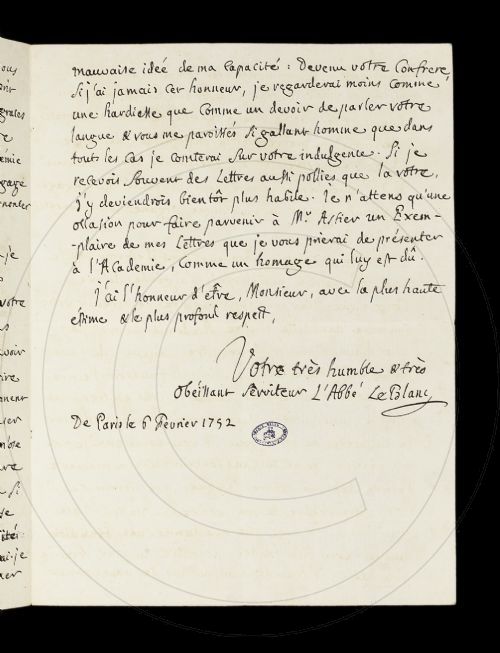 mauvaise idée de ma Capacité : Devenu votre Confrere,
Si j'ai jamais cet honneur, je regarderai moins Comme
une hardiesse que Comme un devoir de parler votre
langue & vous me paroissés si gallant homme que dans
touts les cas je Comterai Sur votre indulgence. Si je
recevois Souvent des Lettres aussi pollies que la vôtre,
j'y deviendrois bientôt plus habile. Je n'attens qu'une
occasion pour faire parvenir à Mr. Askew un Exem-
-plaire de mes Lettres que je vous prierai de présenter
à l'Académie, Comme un homage qui luy est dû.
J'ai l'honneur d'être, Monsieur, avec la plus haute
estime & le plus profond respect,
Votre très humble & très
Obéissant Serviteur L'Abbé Le Blanc
De Paris le 6 Fevrier 1752